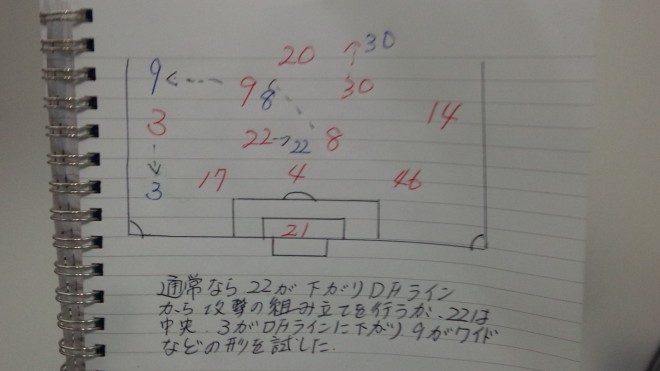 20 ↑30
9 ← 9 8 30
14
3 22→22 8
3 17 4 46
21
通常なら22が下がりDFライン
から攻撃の組み立てを行うが、22は
中央、3がDFラインに下がり9がワイド
などの形を試した。